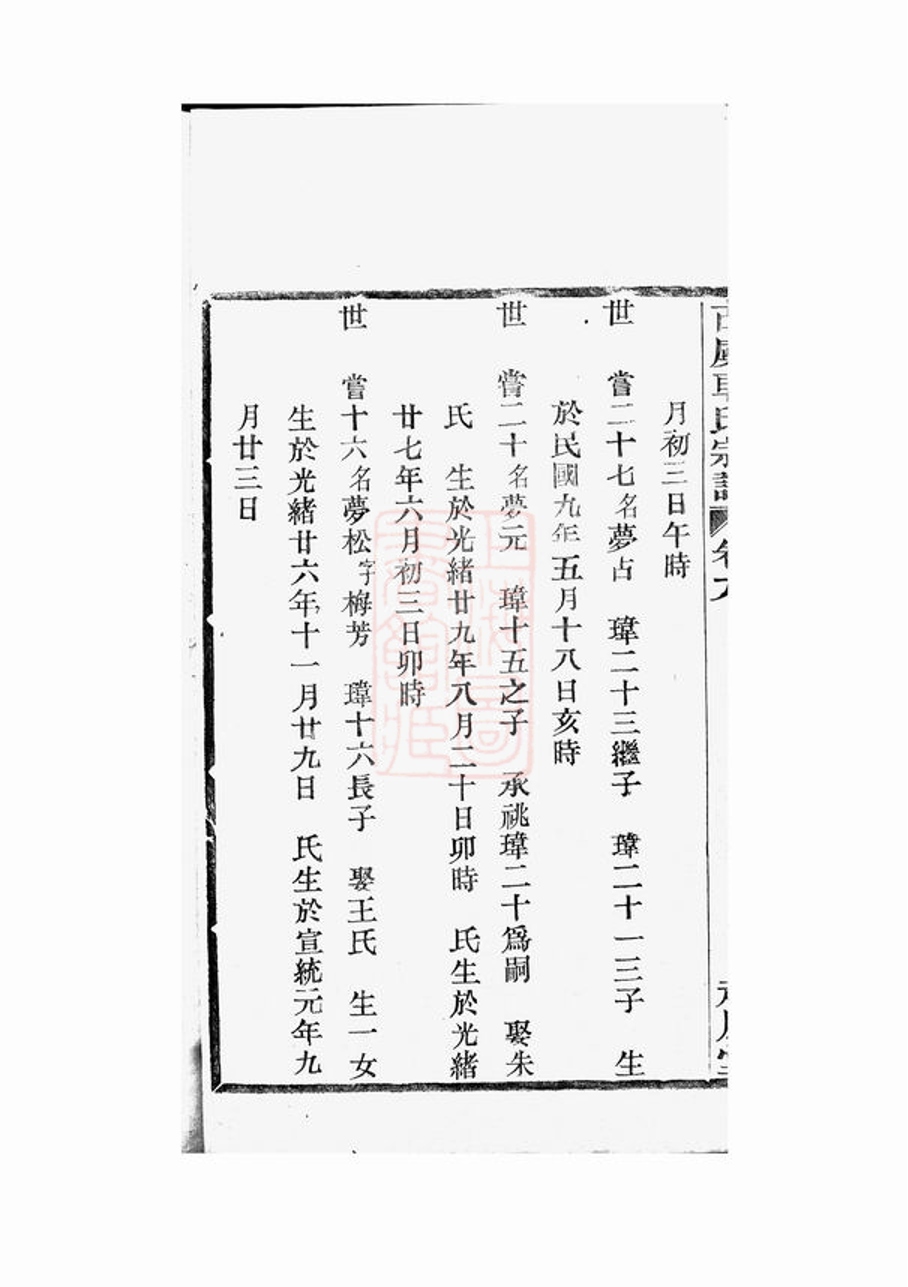 氏宗譜
月初三日午時
世 嘗二十七名夢占 瑋二十三繼子 瑋二十一三子 生
於民國九年五月十八日亥時
世 嘗二十名夢元 瑋十五之子 承祧瑋二十爲嗣 娶朱
氏 生於光緒廿九年八月二十日卯時 氏生於光緒
廿七年六月初三日卯時
世 嘗十六名夢松字梅芳 瑋十六長子 娶王氏 生一女
生於光緒廿六年十一月廿九日 氏生於宣統元年九
月廿三日